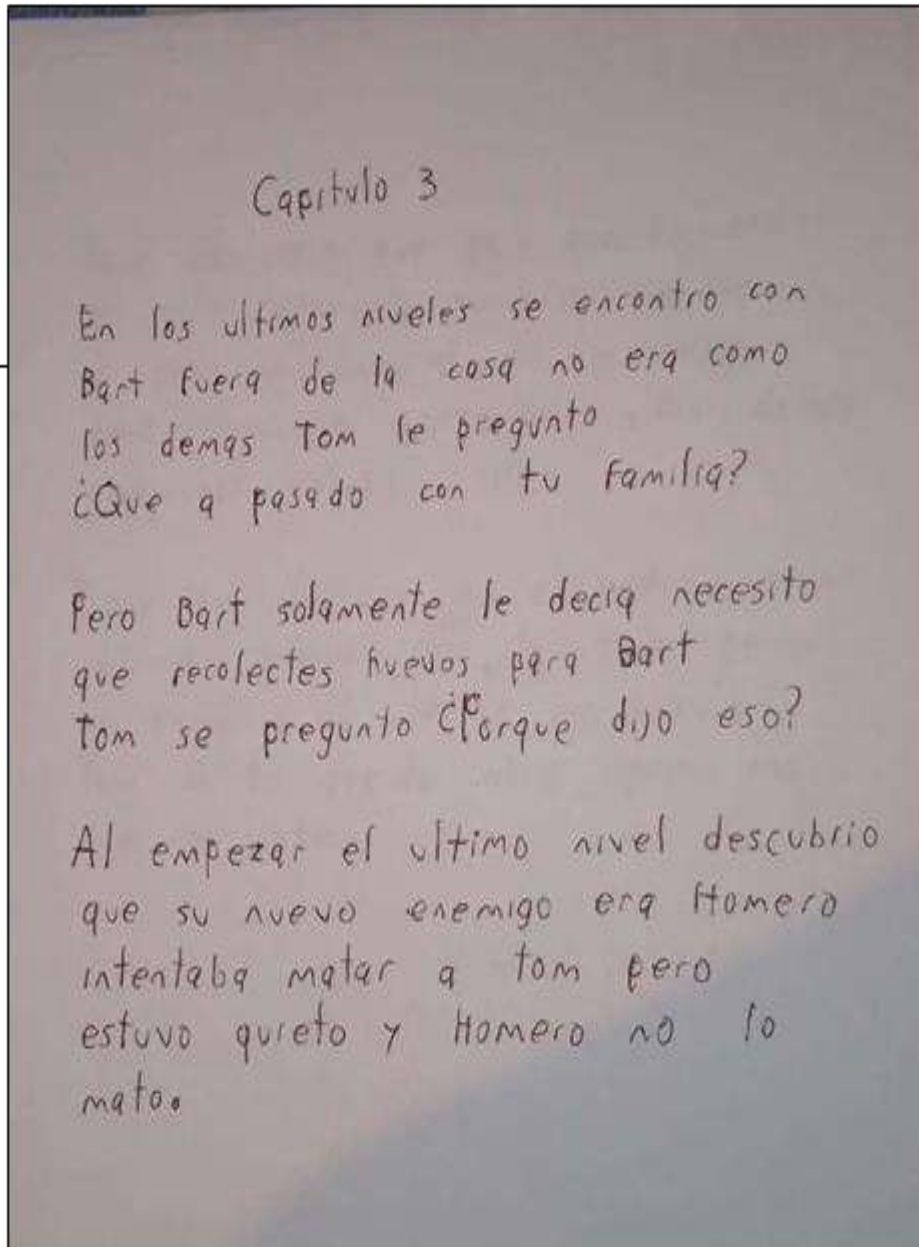 Capitulo 3
En los ultimos niveles se encontro con
Bart fuera de la casa no era como
los demas Tom le pregunto
¿Que a pasado con tu familia?
Pero Bart solamente le decia necesito
que recolectes huevos para Bart
Tom se pregunto ¿Porque dijo eso?
Al empezar el ultimo nivel descubrio
que su nuevo enemigo era Homero
intentaba matar a tom pero
estuvo quieto y Homero no lo
mato.